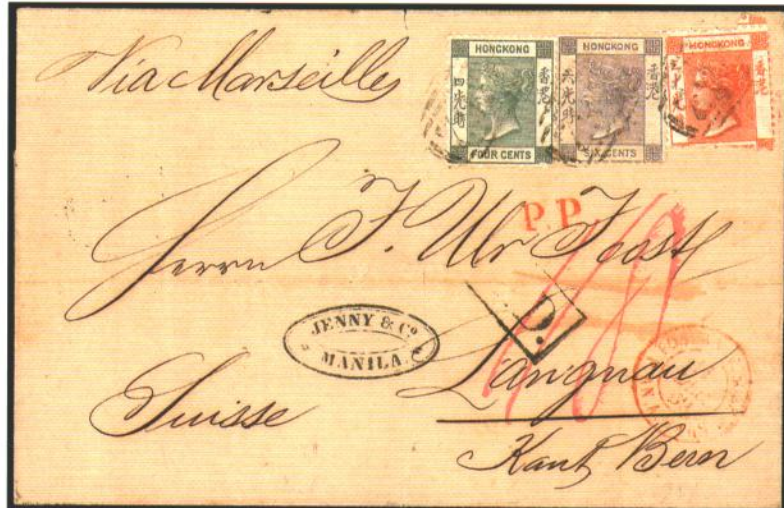 Via Marseille
HONGKONG
四先時
香港
FOUR CENTS
HONGKONG
六先時
香港
SIX CENTS
HONGKONG
香港
Herrn J. Ulr Joost
P.P.
P.
JENNY & Co
MANILA
Langnau
Suisse
Kant Bern